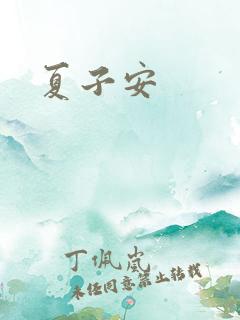 夏子安
丁佩岚
未经同意禁止转载